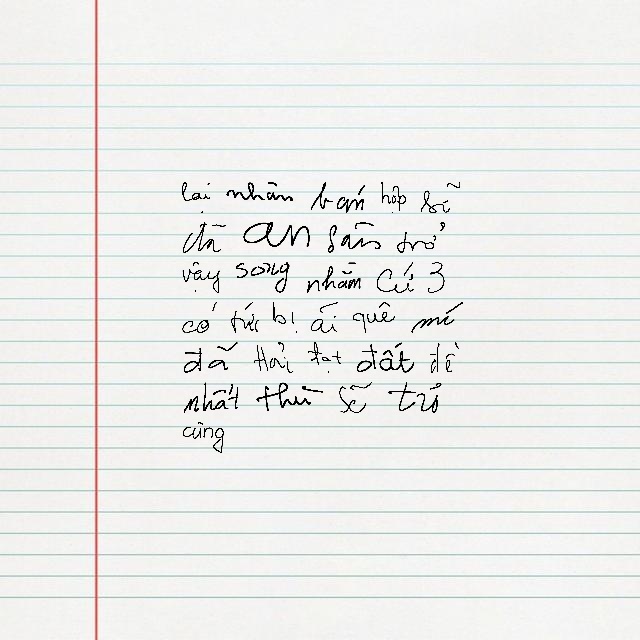 lại nhân bán hộp sĩ
đã an sân trở
vậy song nhằm Cứ 3
có tức bị ái quê mí
đã Hải đạt đất đề
nhất thù sẽ tró
cũng